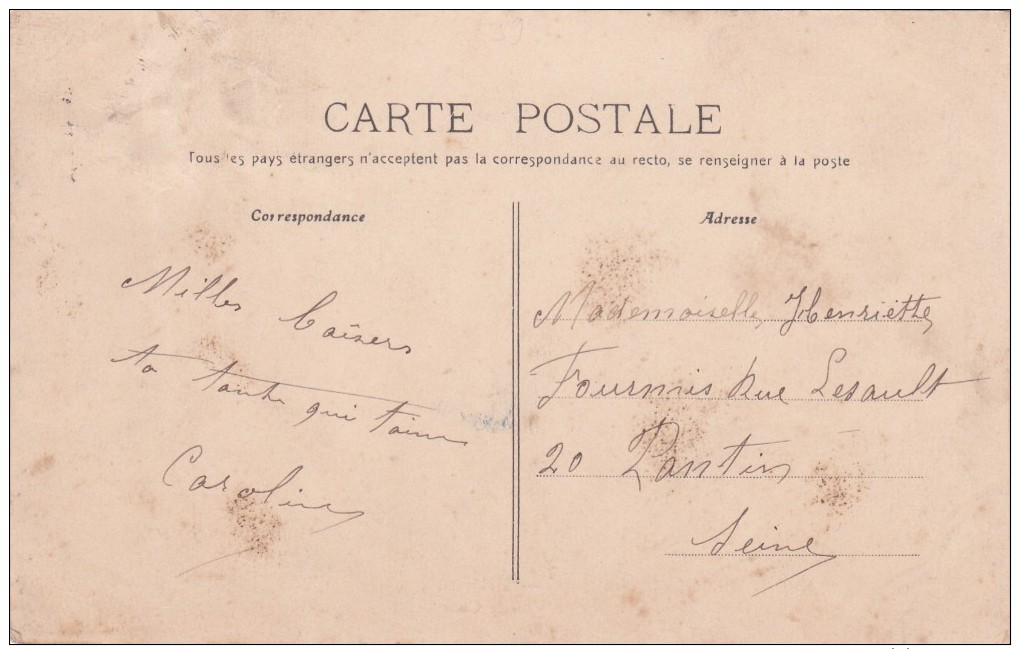 CARTE POSTALE
Tous les pays étrangers n'acceptent pas la correspondance au recto, se renseigner à la poste
Correspondance
Milles baisers
ta tante qui t'aime
Caroline
Adresse
Mademoiselle Henriette
Fourmis Rue Lesault
20 Pantin
Seine